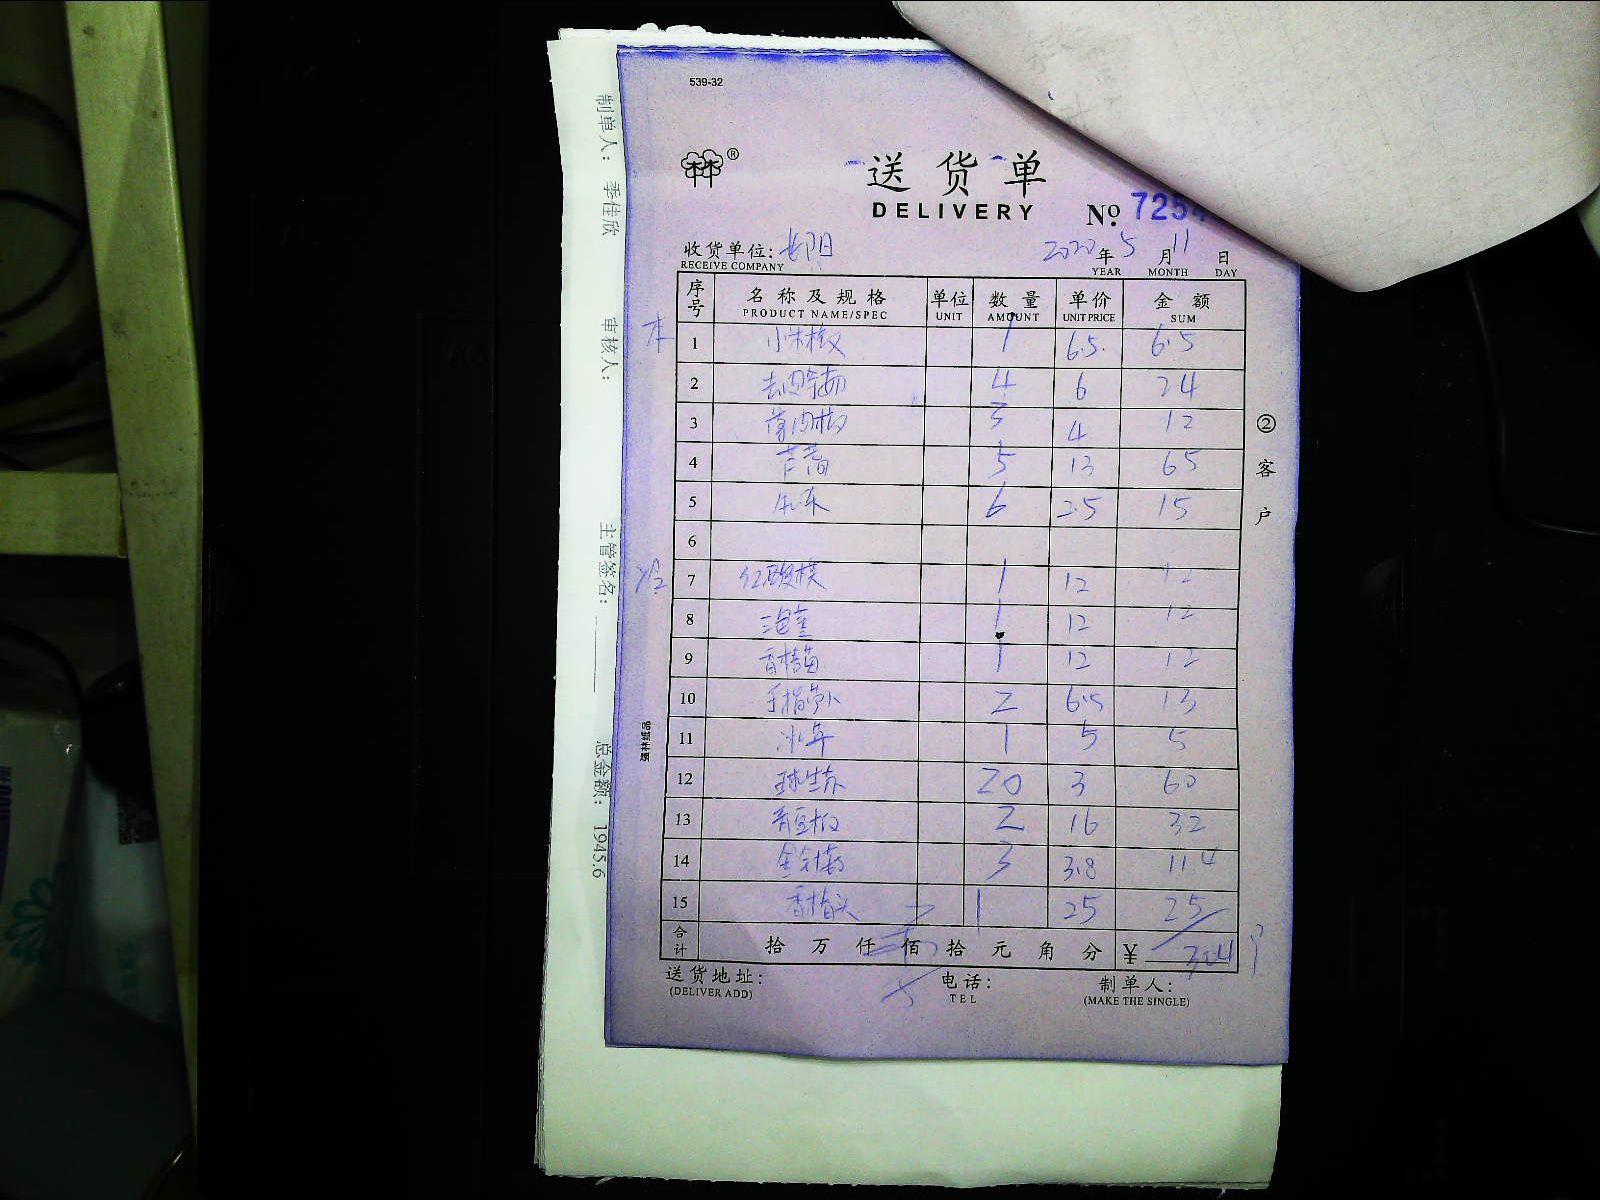 539-32
林®
送货单
DELIVERY
№ 725
收货单位: 长阳 2020年5月11日
RECEIVE COMPANY YEAR MONTH DAY
序号 名称及规格 单位 数量 单价 金额
PRODUCT NAME/SPEC UNIT AMOUNT UNIT PRICE SUM
本 1 小米椒 1 6.5 6.5
2 4 6 24
3 3 4 12
4 5 13 65
5 6 2.5 15
6
冷 7 红酸模 1 12 12
8 1 12 12
9 香椿苗 1 12 12
10 手指萝卜 2 6.5 13
11 冰草 1 5 5
12 球生菜 20 3 60
13 2 16 32
14 金针菇 3 3.8 11.4
15 1 25 25
合计 拾 万 仟 佰 拾 元 角 分 ¥ 304
送货地址: 电话: 制单人:
(DELIVER ADD) TEL (MAKE THE SINGLE)
②客户
强林纸品
制单人: 季佳欣 审核人: 主管签名: 总金额: 1945.6